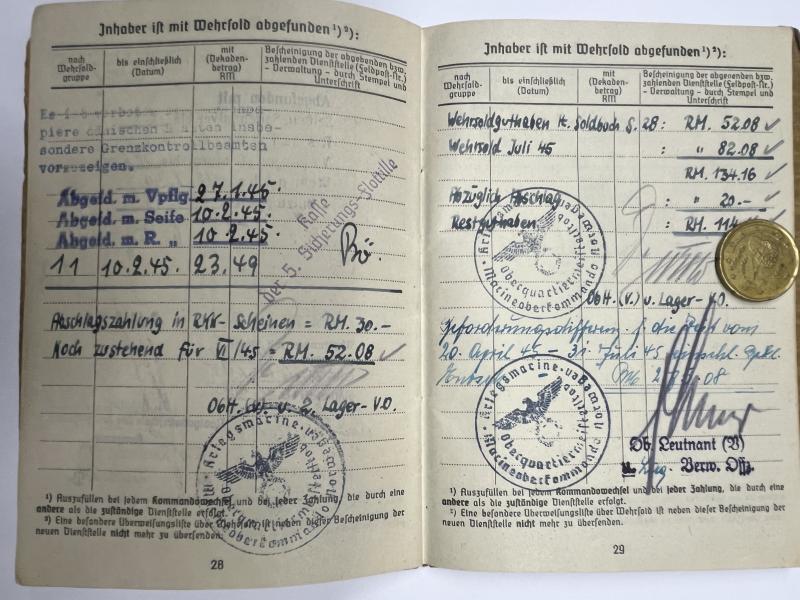 Inhaber ist mit Wehrsold abgefunden ¹) ²):
nach Wehrsold-gruppe
bis einschließlich (Datum)
mit (Dekaden-betrag) RM
Bescheinigung der abgebenden bzw. zahlenden Dienststelle (Feldpost-Nr.) - Verwaltung - durch Stempel und Unterschrift
piere
sondere Grenzkontrollbeamten
vorzuzeigen.
Abgefd. m. Vpflg 27.1.45.
Abgefd. m. Seife 10.2.45.
Abgefd. m. R. " 10.2.45.
11 10.2.45. 23.49
Kasse
der 5. Sicherungs-Flottille
Abschlagszahlung in RKK-Scheinen = RM. 30.-
Noch zustehend für VI/45 = RM. 52.08
ObH. (V.) u. Lager-V.O.
Kriegsmarine
Oberquartiermeisterstab
Marineoberkommando
¹) Auszufüllen bei jedem Kommandowechsel und bei jeder Zahlung, die durch eine
andere als die zuständige Dienststelle erfolgt.
²) Eine besondere Überweisungsliste über Wehrsold ist neben dieser Bescheinigung der
neuen Dienststelle nicht mehr zu übersenden.
28
Inhaber ist mit Wehrsold abgefunden ¹) ²):
nach Wehrsold-gruppe
bis einschließlich (Datum)
mit (Dekaden-betrag) RM
Bescheinigung der abgebenden bzw. zahlenden Dienststelle (Feldpost-Nr.) - Verwaltung - durch Stempel und Unterschrift
Wehrsoldguthaben lt. Soldbuch S. 28: RM. 52.08
Wehrsold Juli 45 : " 82.08
RM. 134.16
Abzüglich Abschlag : " 20.-
Restguthaben : RM. 114
ObH. (V.) u. Lager-V.O.
Kriegsmarine
Marineoberkommando
20. April 45 - 31. Juli 45
Kriegsmarine
Marineoberkommando
Ob. Leutnant (V)
u. Lag. Verw. Offz.
¹) Auszufüllen bei jedem Kommandowechsel und bei jeder Zahlung, die durch eine
andere als die zuständige Dienststelle erfolgt.
²) Eine besondere Überweisungsliste über Wehrsold ist neben dieser Bescheinigung der
neuen Dienststelle nicht mehr zu übersenden.
29